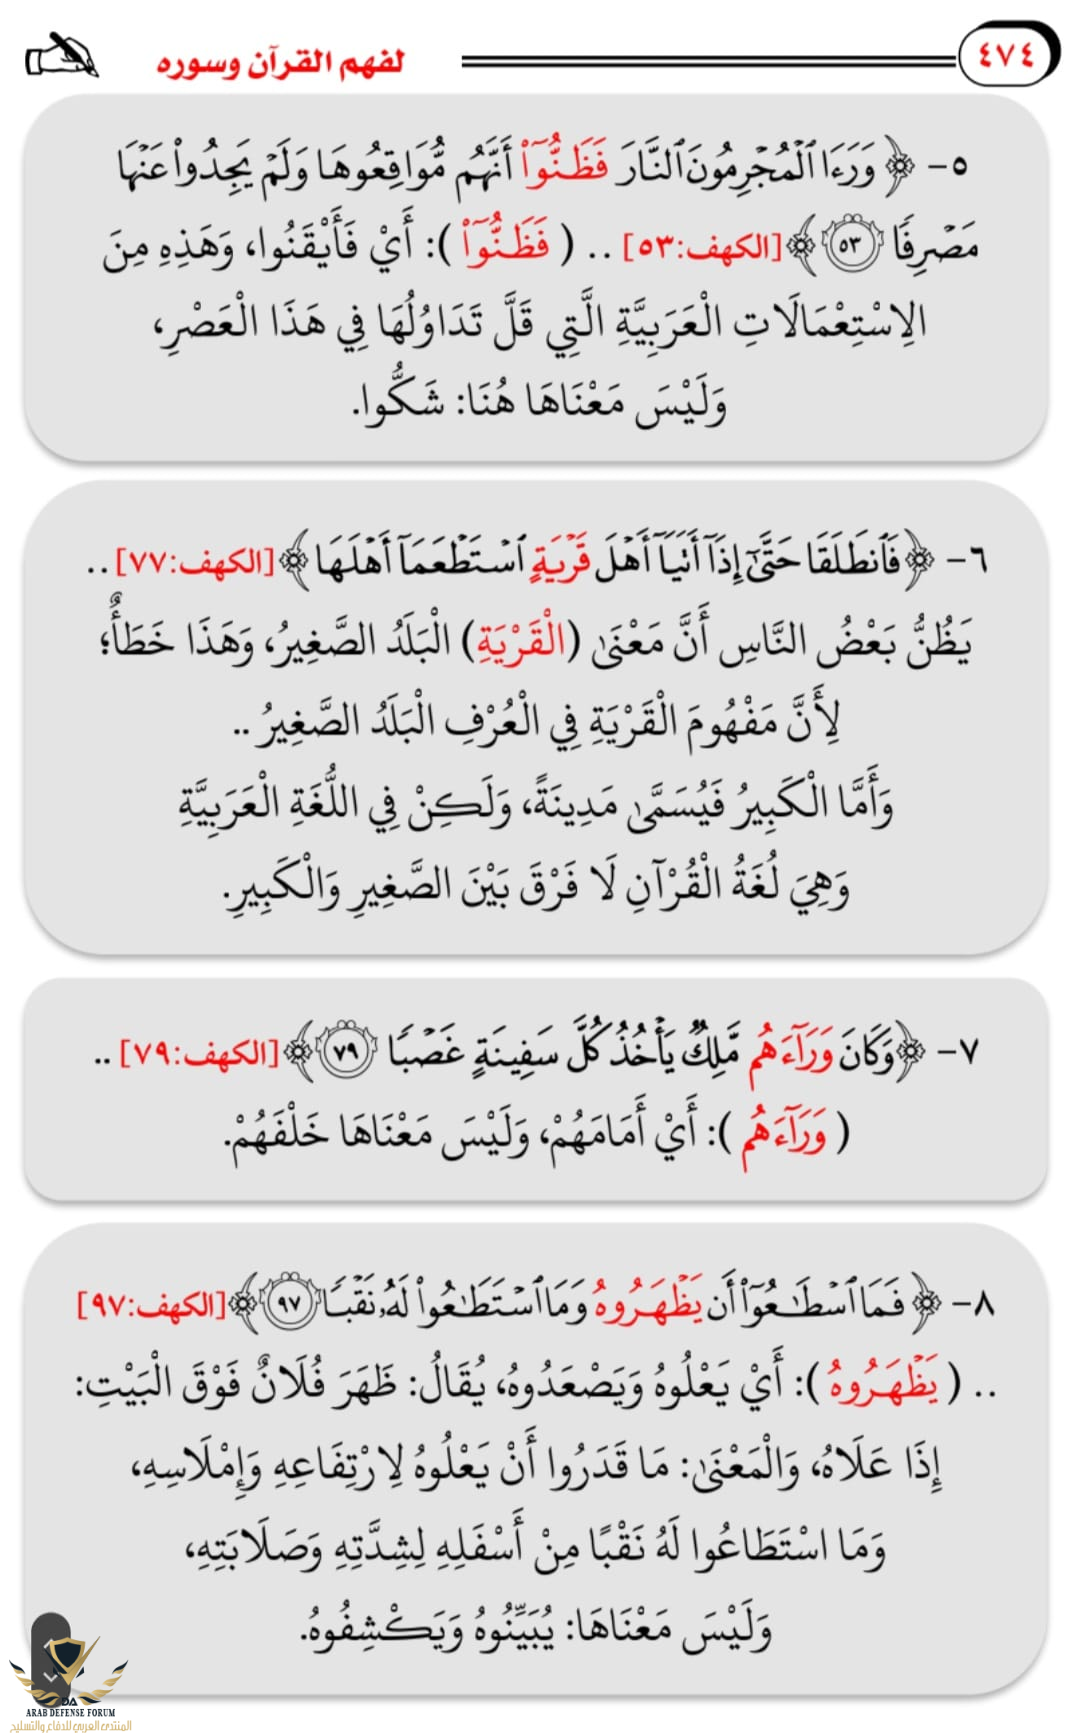 ٤٧٤
لفهم القرآن وسوره
٥- ﴿ وَرَءَا ٱلْمُجْرِمُونَ ٱلنَّارَ فَظَنُّوٓا۟ أَنَّهُم مُّوَاقِعُوهَا وَلَمْ يَجِدُوا۟ عَنْهَا
مَصْرِفًا ٥٣ ﴾ [الكهف:٥٣] .. ( فَظَنُّوٓا۟ ): أَيْ فَأَيْقَنُوا، وَهَذِهِ مِنَ
الِاسْتِعْمَالَاتِ الْعَرَبِيَّةِ الَّتِي قَلَّ تَدَاوُلُهَا فِي هَذَا الْعَصْرِ،
وَلَيْسَ مَعْنَاهَا هُنَا: شَكُّوا.
٦- ﴿ فَٱنطَلَقَا حَتَّىٰٓ إِذَآ أَتَيَآ أَهْلَ قَرْيَةٍ ٱسْتَطْعَمَآ أَهْلَهَا ﴾ [الكهف:٧٧] ..
يَظُنُّ بَعْضُ النَّاسِ أَنَّ مَعْنَىٰ (الْقَرْيَةِ) الْبَلَدُ الصَّغِيرُ، وَهَذَا خَطَأٌ؛
لِأَنَّ مَفْهُومَ الْقَرْيَةِ فِي الْعُرْفِ الْبَلَدُ الصَّغِيرُ ..
وَأَمَّا الْكَبِيرُ فَيُسَمَّىٰ مَدِينَةً، وَلَكِنْ فِي اللُّغَةِ الْعَرَبِيَّةِ
وَهِيَ لُغَةُ الْقُرْآنِ لَا فَرْقَ بَيْنَ الصَّغِيرِ وَالْكَبِيرِ.
٧- ﴿ وَكَانَ وَرَآءَهُم مَّلِكٌ يَأْخُذُ كُلَّ سَفِينَةٍ غَصْبًا ٧٩ ﴾ [الكهف:٧٩] ..
( وَرَآءَهُم ): أَيْ أَمَامَهُمْ، وَلَيْسَ مَعْنَاهَا خَلْفَهُمْ.
٨- ﴿ فَمَا ٱسْطَـٰعُوٓا۟ أَن يَظْهَرُوهُ وَمَا ٱسْتَطَـٰعُوا۟ لَهُۥ نَقْبًا ٩٧ ﴾ [الكهف:٩٧]
.. ( يَظْهَرُوهُ ): أَيْ يَعْلُوهُ وَيَصْعَدُوهُ، يُقَالُ: ظَهَرَ فُلَانٌ فَوْقَ الْبَيْتِ:
إِذَا عَلَاهُ، وَالْمَعْنَىٰ: مَا قَدَرُوا أَنْ يَعْلُوهُ لِارْتِفَاعِهِ وَإِمْلَاسِهِ،
وَمَا اسْتَطَاعُوا لَهُ نَقْبًا مِنْ أَسْفَلِهِ لِشِدَّتِهِ وَصَلَابَتِهِ،
وَلَيْسَ مَعْنَاهَا: يُبَيِّنُوهُ وَيَكْشِفُوهُ.
DA
ARAB DEFENSE FORUM
المنتدى العربي للدفاع والتسليح